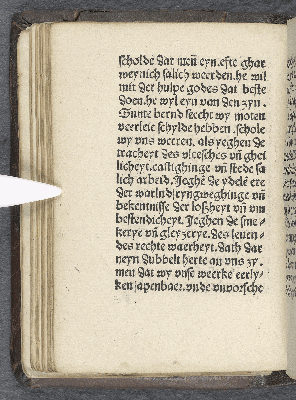 scholde dar men eyn.efte ghar
weynich salich weerden.he wil
mit der hulpe godes dat beste
doen.he wyl eyn van den zyn.
Sunte bernd secht wy moten
veerleie schylde hebben .schole
wy vns weeren, als yeghen de
tracheyt des vleesches vn̄ ghei
licheyt.castighinge vn̄ stede sa
lich arbeid. Jeghē de ydele ere
der warlnd
bekentnisse der boßheyt vn̄ vn
bestendicheyt. Jeghen de sme⸗
kerye vn̄ gleyzerye. des leuen⸗
des rechte waerheyt. dath dar
neyn dubbelt herte an vns zy.
men dat wy vnse weerke eerly⸗
ken japenbaer. vnde vnvorsche